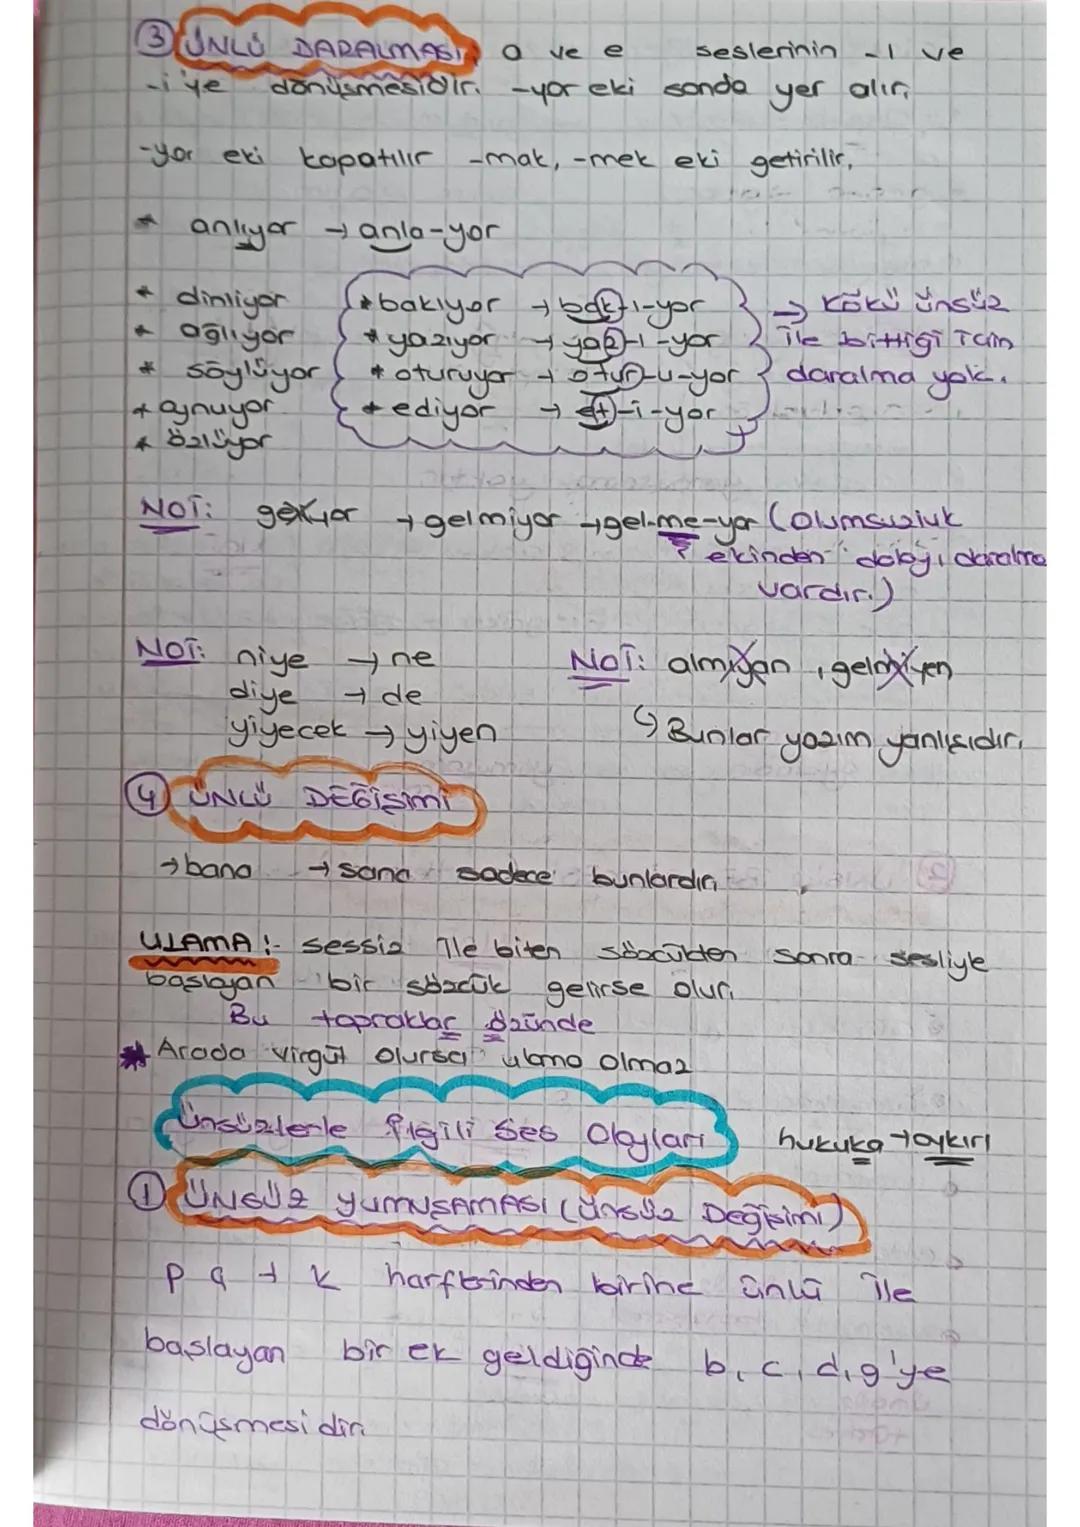 ③ ÜNLÜ DARALMASI: a ve e seslerinin -ı ve
-i'ye dönüşmesidir. -yor eki sonda yer alır.
-yor eki kapatılır -mak, -mek eki getirilir.
* anlıyor → anla-yor
* dinliyor
* ağlıyor
* söylüyor
* oynuyor
* özlüyor
* bakıyor → bak-ı-yor
* yazıyor → yaz-ı-yor
* oturuyor → otur-u-yor
* ediyor → et-i-yor
→ Kökü ünsüz
ile bittiği için
daralma yok.
NOT: geliyor → gelmiyor → gel-me-yor (Olumsuzluk
ekinden dolayı daralma
vardır.)
NOT: niye → ne
diye → de
yiyecek → yiyen
NOT: almıyan, gelmiyen
↳ Bunlar yazım yanlışıdır.
④ ÜNLÜ DEĞİŞİMİ
→ bana → sana sadece bunlardır.
ULAMA: sessiz ile biten sözcükten sonra sesliyle
başlayan bir sözcük gelirse olur.
Bu topraklar özünde
* Arada virgül olursa ulama olmaz
Ünsüzlerle İlgili Ses Olayları
hukuka → aykırı
① ÜNSÜZ YUMUŞAMASI (Ünsüz Değişimi)
p ç t k harflerinden birine ünlü ile
başlayan bir ek geldiğinde b, c, d, g'ye
dönüşmesidir.